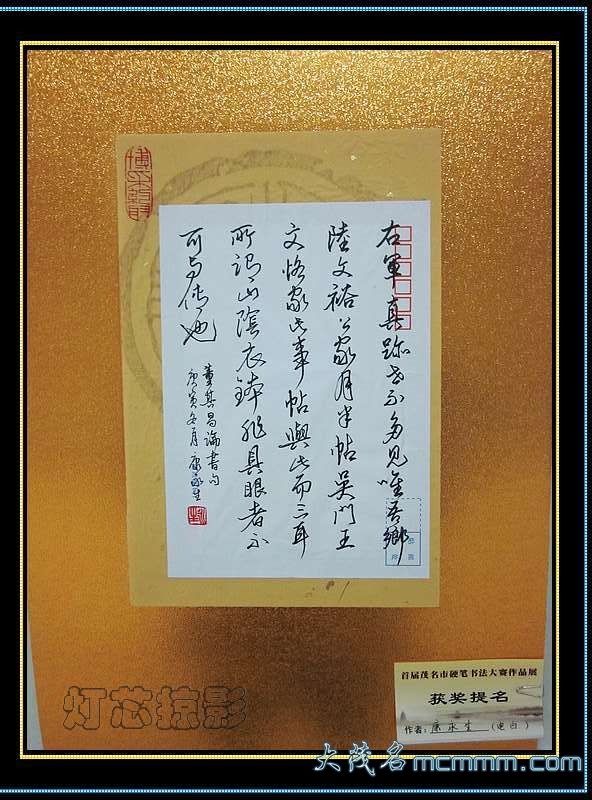 右軍真跡世不多見唯吾鄉
陸文裕公家月半帖吳門王
文恪家此事帖與此而三耳
所謂山陰衣鉢非具眼者不
可与傳也
董其昌論書句
庚寅冬月康永生
首届茂名市硬笔书法大赛作品展
获奖提名
作者:康永生(电白)
灯芯掠影
大茂名mcmmm.com